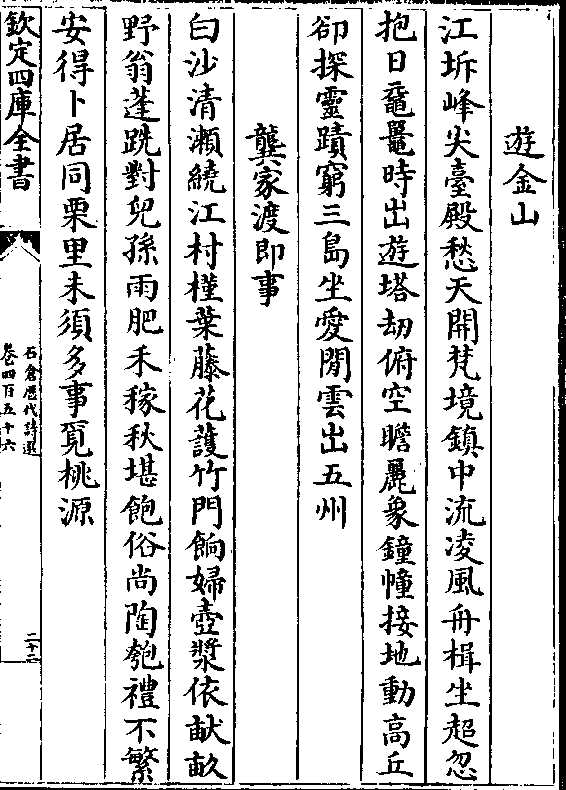 遊金山
江坼峰尖臺殿愁天開梵境鎮中流凌風舟楫坐超忽
抱日黿鼉時出遊塔刼俯空瞻麗象鐘幢接地動高丘
卻探靈蹟窮三島坐愛閒雲出五州
龔家渡即事
白沙清瀬繞江村槿葉藤花護竹門餉婦壺漿依畎畝
野翁蓬跣對兒孫雨肥禾稼秋堪飽俗尚陶匏禮不繁
安得卜居同栗里未須多事覓桃源
欽定四庫全書
石倉歴代詩選
卷四百五十六
二十二